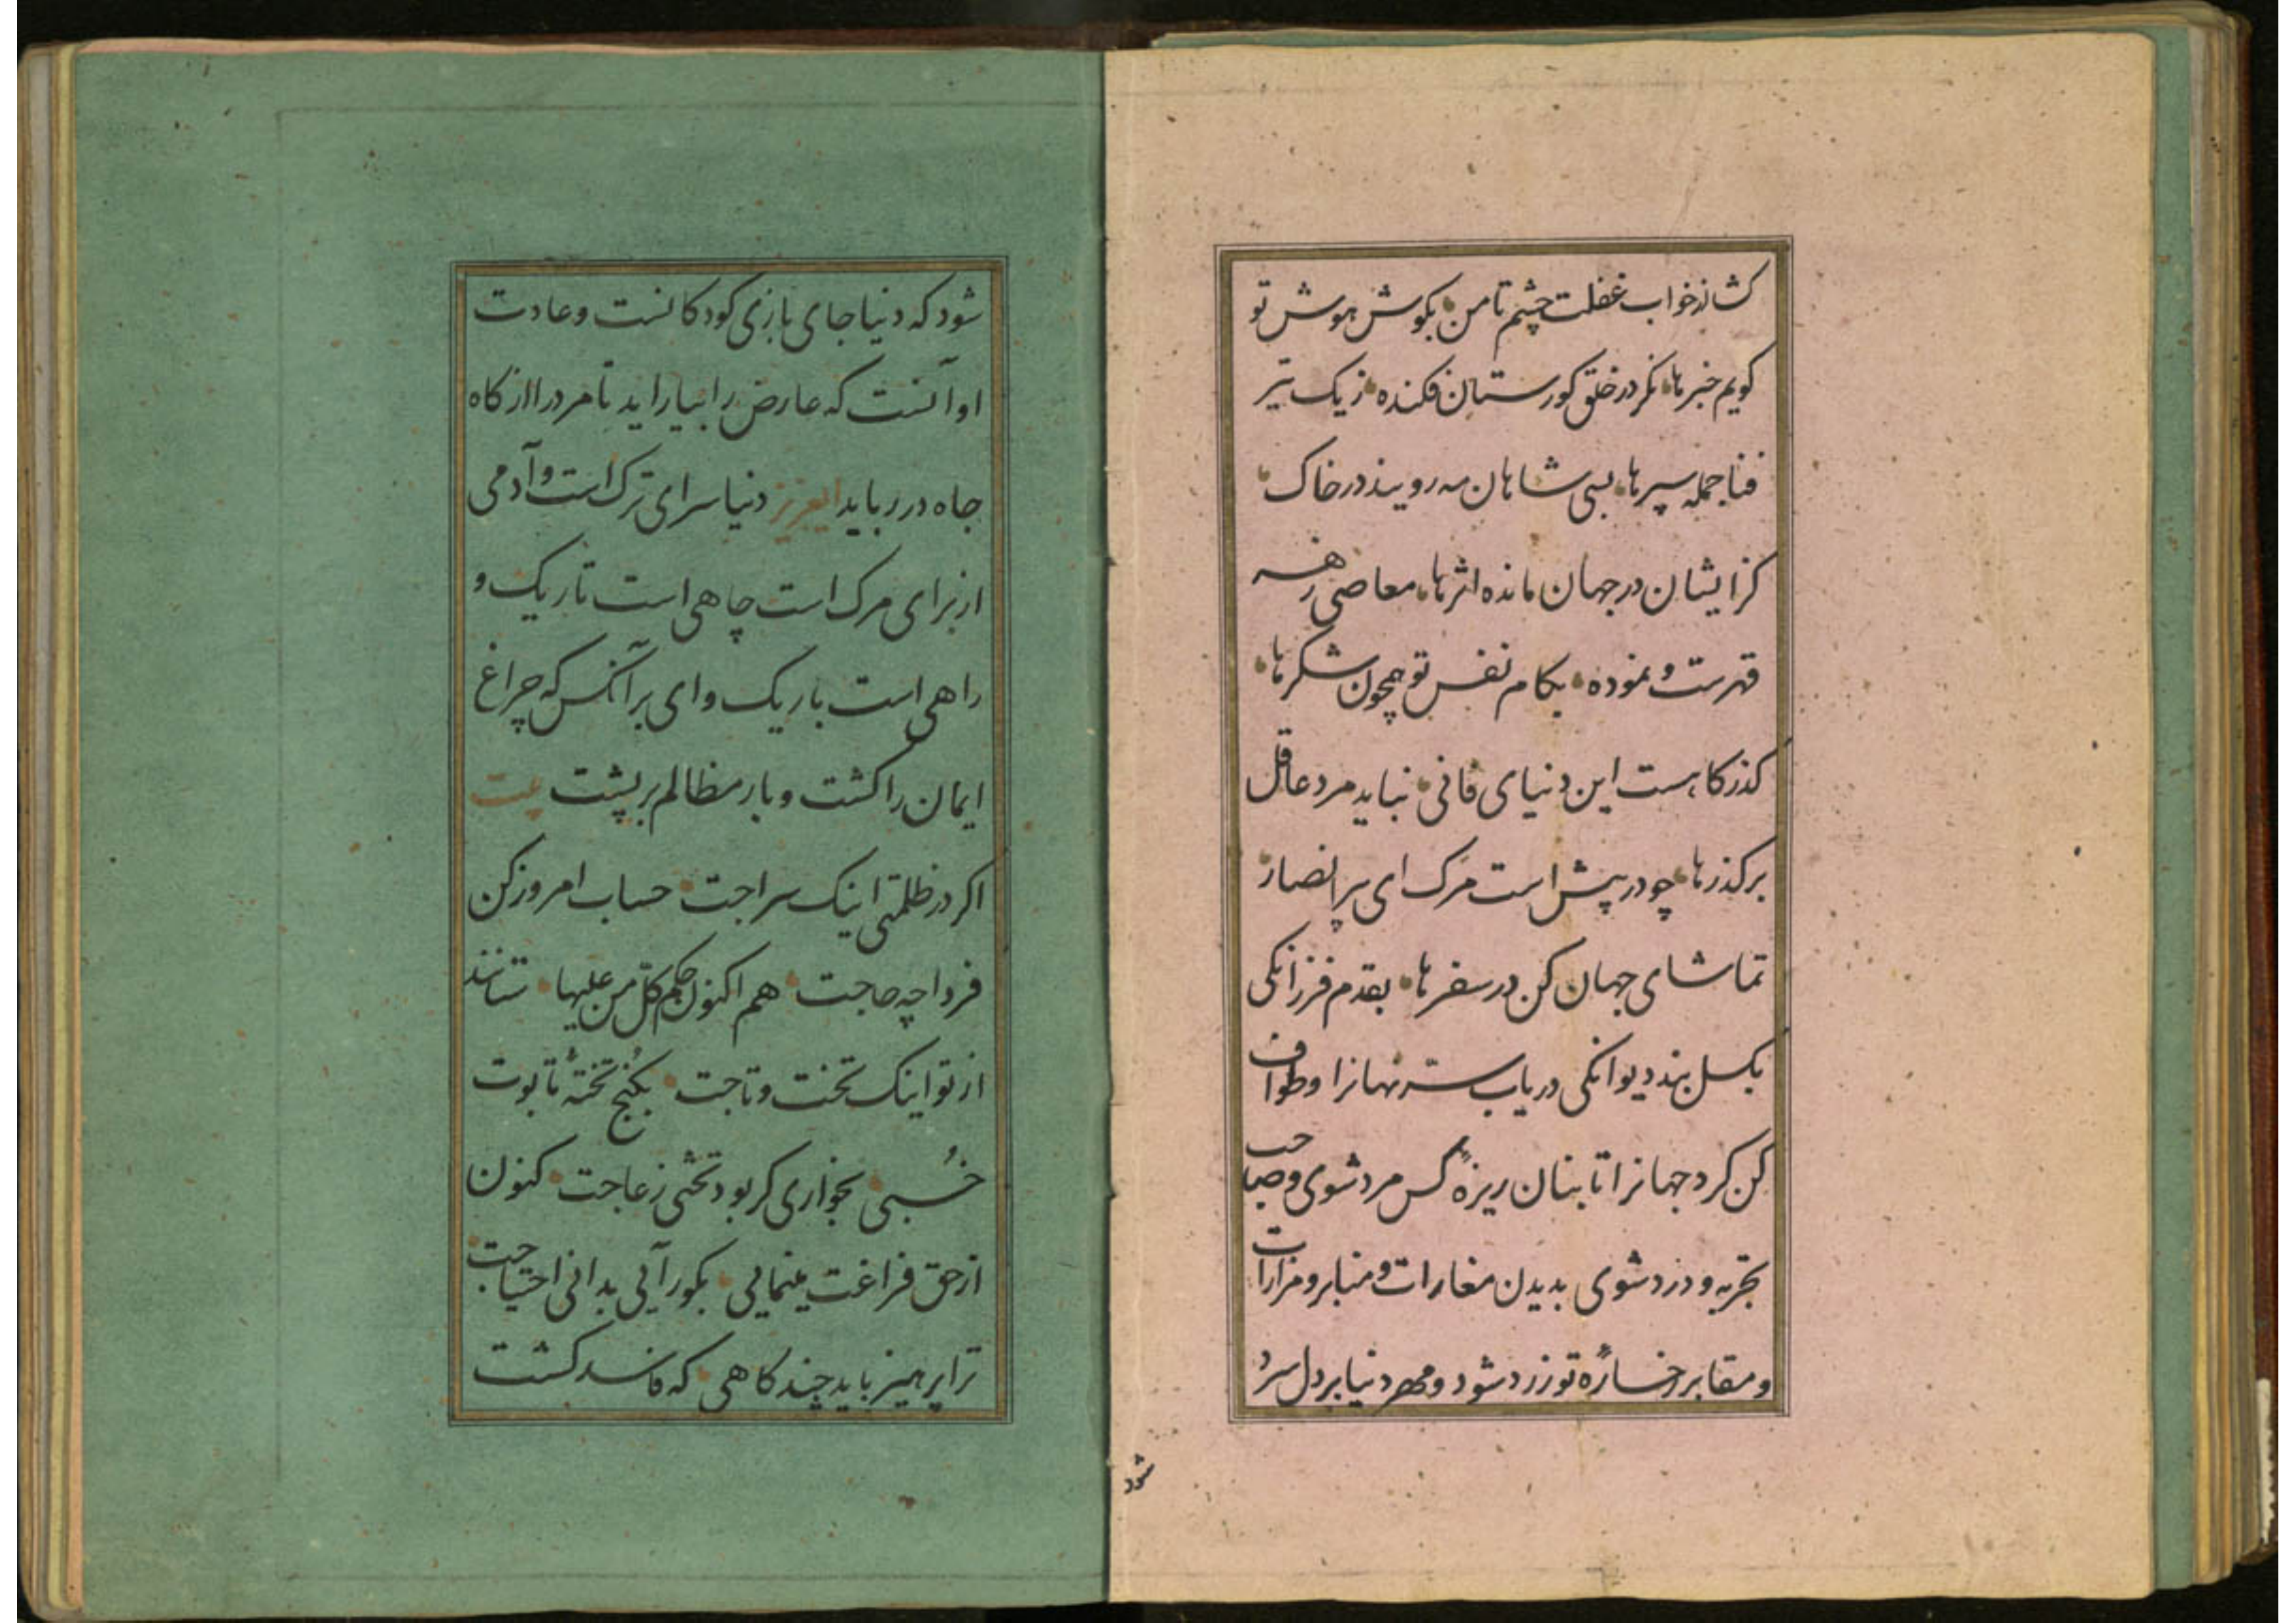 کشا از خواب غفلت چشم تا من بکوش هوش تو
کویم خبرها نکر در خلق کورستان فکنده زیک تیر
فنا جمله سپرها بسی شاهان مه رویند در خاک
کز ایشان در جهان مانده اثرها معاصی زهر
قهرست و نموده بکام نفس تو همچون شکرها
کذرکاهست این دنیای فانی نباید مرد عاقل
برکذرها چو در پیش است مرک ای پیر انصار
تماشای جهان کن در سفرها بقدم فرزانکی
بکسل بند دیوانکی دریاب سته نهانرا و طواف
کن کرد جهانرا تا بنان ریزه کس مرد شوی و صاحب
تجربه و درد شوی بدیدن مغارات و منابر و مزارات
و مقابر رخساره تو زرد شود و مهر دنیا بر دل سرد
شود
شود که دنیا جای بازی کودکانست و عادت
او آنست که عارض را بیاراید تا مرد را از کاه
جاه در رباید ای عزیز دنیا سرای ترک است و آدمی
از برای مرک است چاهی است تاریک و
راهی است باریک وای بر آنکس که چراغ
ایمان را کشت و بار مظالم بر پشت بیت
اکر در ظلمتی اینک سراجت حساب امروز کن
فردا چه حاجت هم اکنون حکم کل من علیها ستانند
از تو اینک تخت و تاجت بکنج تخته تابوت
خسبی بخواری کر بود تختی زعاجت کنون
از حق فراغت مینمایی بکور آئی بدانی احتیاجت
ترا پرهیز باید چند کاهی که فاسد کشت